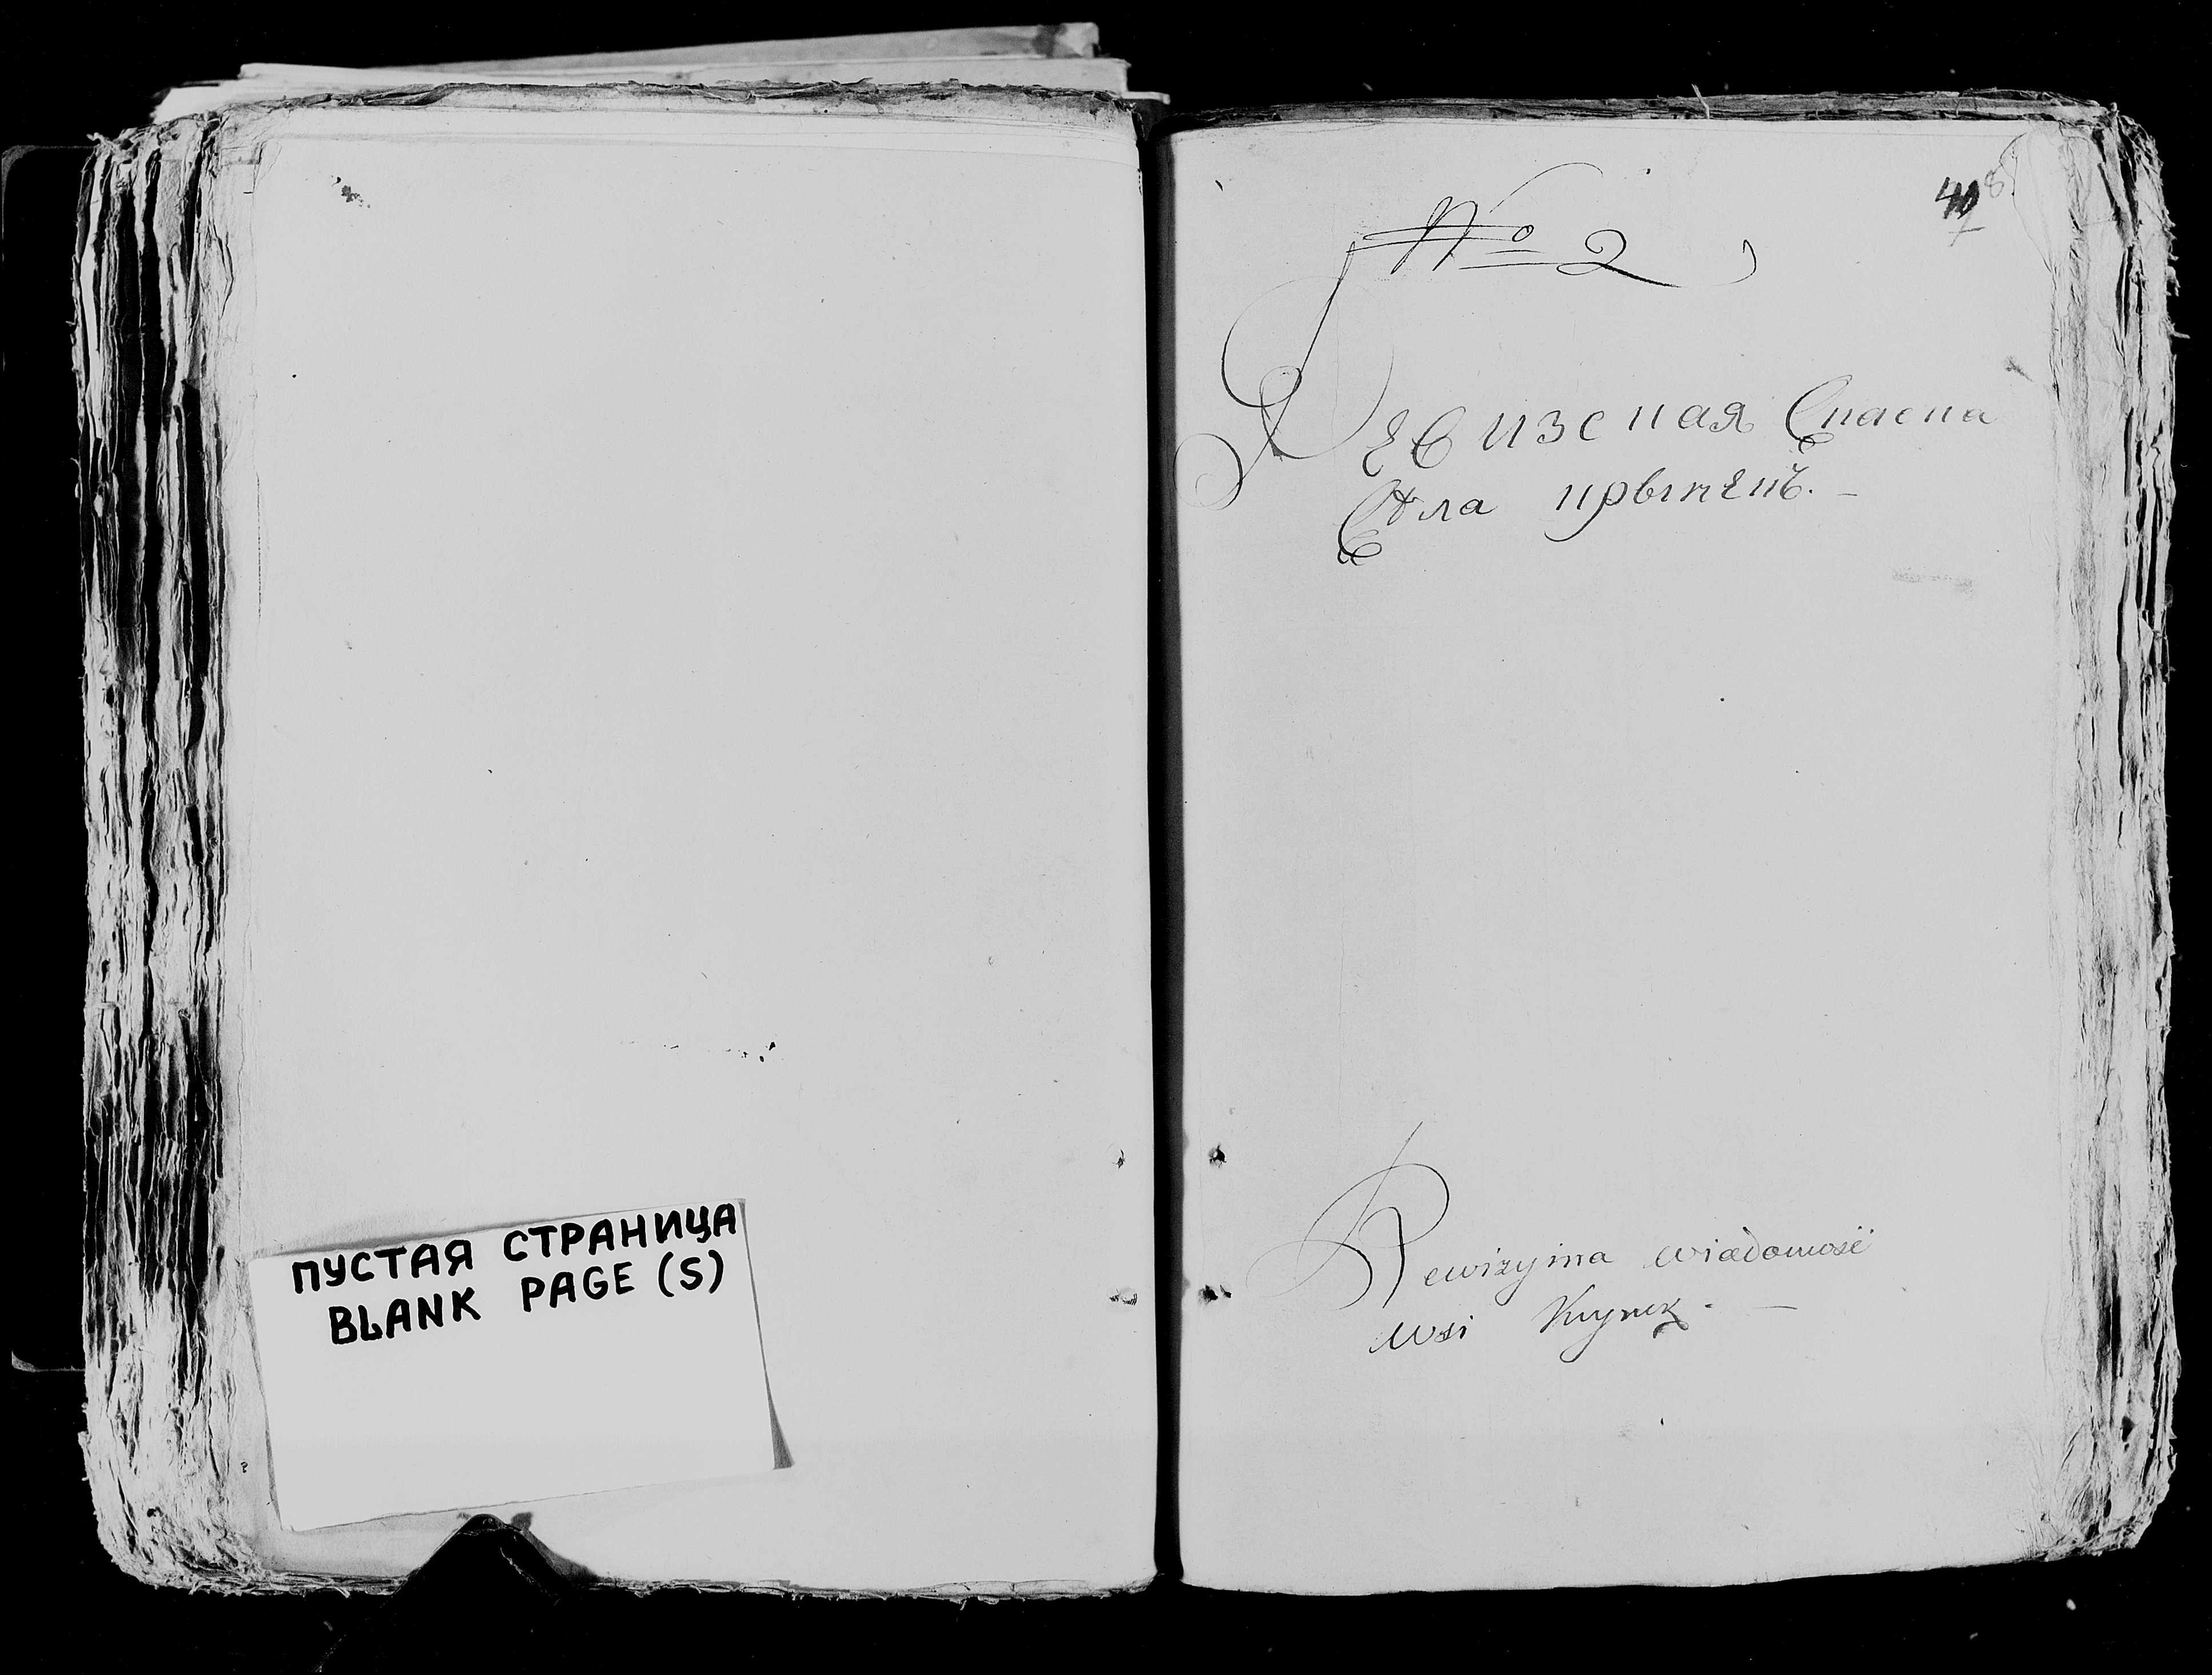 ПУСТАЯ СТРАНИЦА
BLANK PAGE (S)
№ 2
Ревизская Сказка
Села
Rewizyina wiadomość
wsi